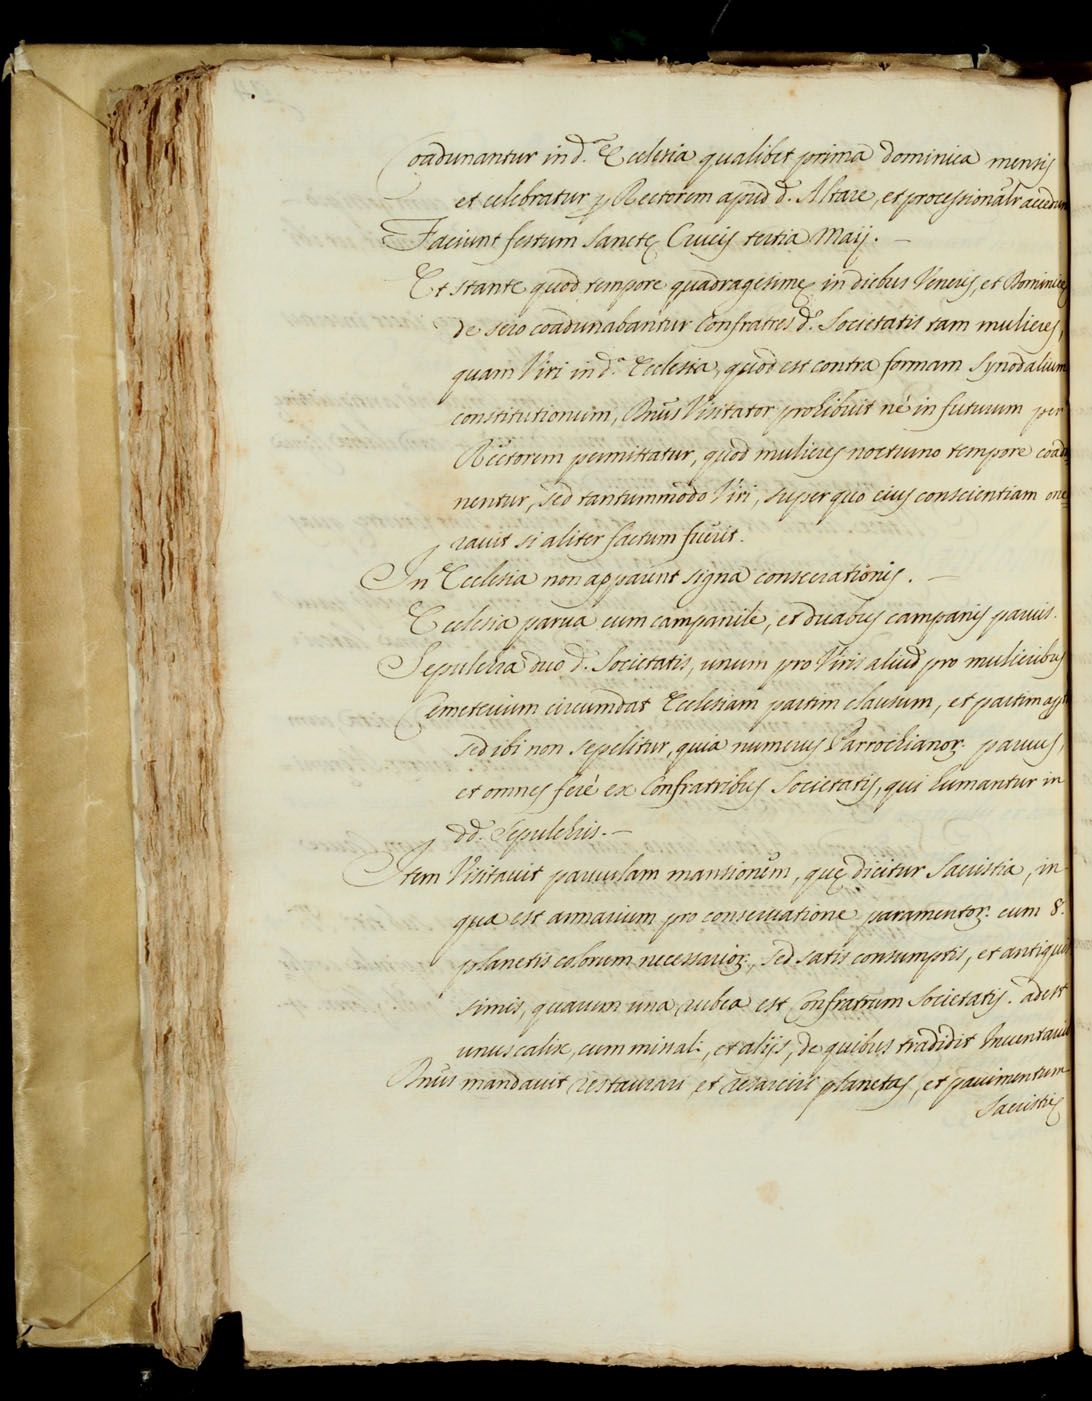 Coadunantur in d.ᵃ Ecclesia qualibet prima dominica mensis
et celebratur p Rectorem apud d. Altare, et processionalr accedun
Faciunt festum Sanctę Crucis tertia Maij. –
Et stante quod tempore quadragesimę in diebus Veneris, et Dominicę
de sero coadunabantur Confratres d.ᵉ Societatis tam mulieres,
quam Viri in d.ᵃ Ecclesia, quod est contra formam Synodalium
constitutionum, Dnus Visitator prohibuit né in futurum per
Rectorem permittatur, quod mulieres nocturno tempore coadu
nentur, sed tantummodo Viri, super quo eius conscientiam one
ravit si aliter factum fuerit.
In Ecclesia non apparent signa consecrationis. –
Ecclesia parva cum campanile, et duabus campanis parvis.
Sepulchra duo d. Societatis, unum pro Viris aliud pro mulieribus
Cemeterium circumdat Ecclesiam partim clausum, et partim apt
sed ibi non sepelitur, quia numerus Parrochianoꝝ parvus,
et omnes feré ex Confratribus Societatis, qui humantur in
dd. Sepulchris. –
Item Visitavit parvulam mansionem, quę dicitur Sacristia, in
qua est armarium pro conservatione paramentoꝝ cum 8.
planetis colorum necessarioꝝ, sed satis consumptis, et antiquis
simis, quarum una rubea est Confratrum Societatis. adest
unus calix, cum missali, et alijs, de quibus tradidit Inventariu
Dnus mandavit restaurari et resarciri planetas, et pavimentum
Sacristię